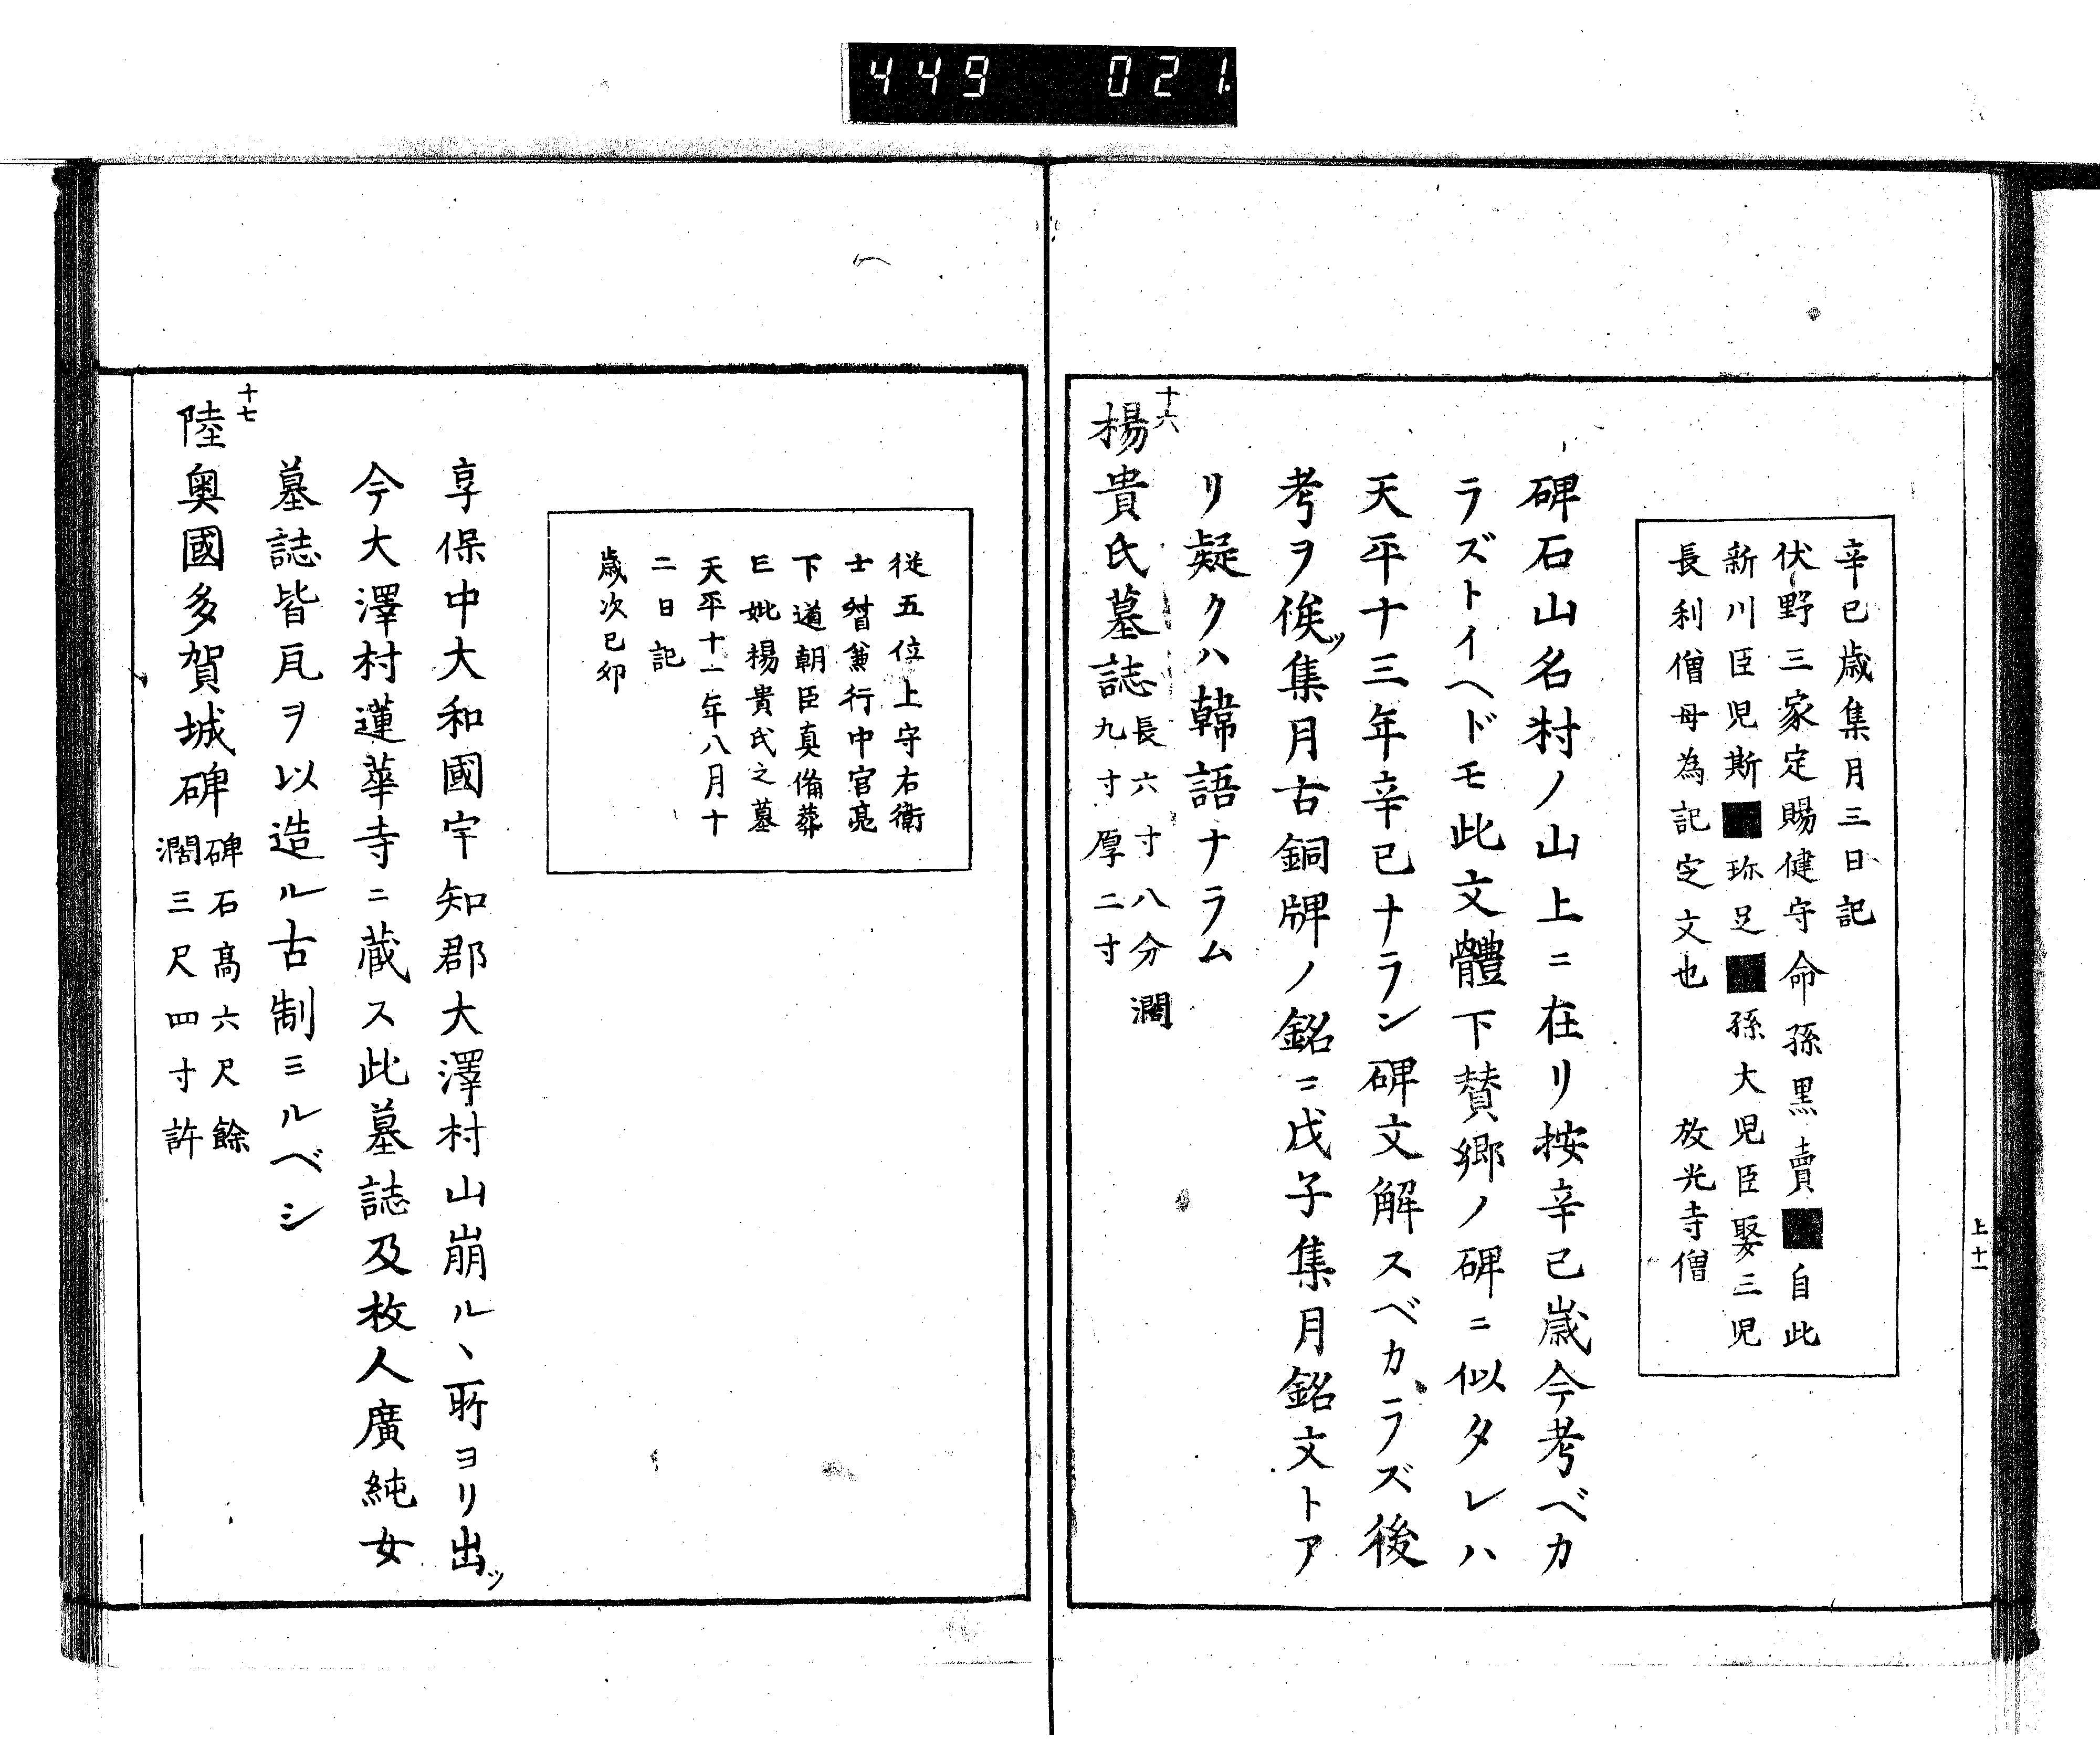 449 021
上十一
辛巳歳集月三日記
伏野三家定賜健守命孫黒賣■自此
新川臣児斯■珎足■孫大児臣娶三児
長利僧母為記定文也 放光寺僧
碑石山名村ノ山上ニ在リ按辛己歳今考ベカ
ラズトイヘドモ此文體下賛郷ノ碑ニ似タレハ
天平十三年辛己ナラン碑文解スベカラズ後
考ヲ俟ッ集月古銅牌ノ銘ニ戊子集月銘文トア
リ疑クハ韓語ナラム
十六
楊貴氏墓誌
長六寸八分濶
九寸厚二寸
従五位上守右衛
士督兼行中宮亮
下道朝臣真備葬
亡妣楊貴氏之墓
天平十一年八月十
二日記
歳次己卯
享保中大和國宇知郡大澤村山崩ルヽ所ヨリ出ッ
今大澤村蓮華寺ニ蔵ス此墓誌及枚人廣純女
墓誌皆瓦ヲ以造ル古制ミルベシ
十七
陸奥國多賀城碑
碑石髙六尺餘
濶三尺四寸許